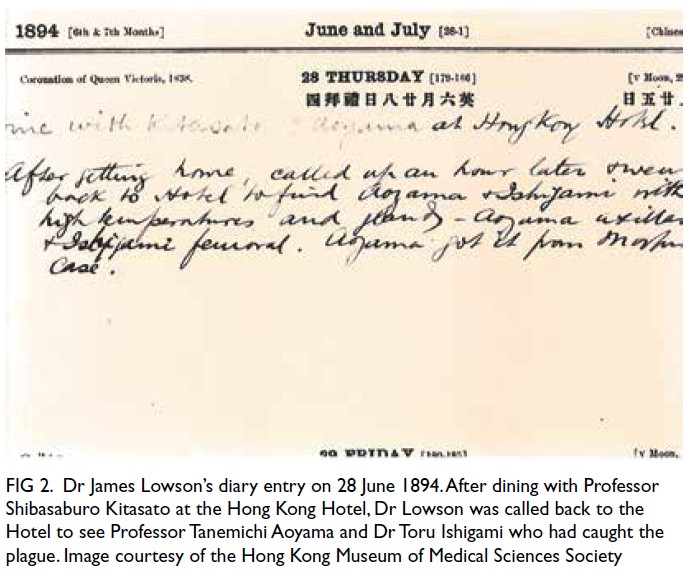 1894 [6th & 7th Months] June and July [28-1] [Chines
Coronation of Queen Victoria, 1838. 28 THURSDAY [179-186] [v Moon, 2
英六月廿八日禮拜四 廿五日
with Kitasato & Aoyama at Hong Kong Hotel.
After getting home, called up an hour later & wen
back to Hotel to find Aoyama & Ishigami with
high temperatures and glands - Aoyama axillar
& Ishigami femoral. Aoyama got it from
case.
29 FRIDAY [180-185] [v Moon,
FIG 2. Dr James Lowson's diary entry on 28 June 1894. After dining with Professor
Shibasaburo Kitasato at the Hong Kong Hotel, Dr Lowson was called back to the
Hotel to see Professor Tanemichi Aoyama and Dr Toru Ishigami who had caught the
plague. Image courtesy of the Hong Kong Museum of Medical Sciences Society